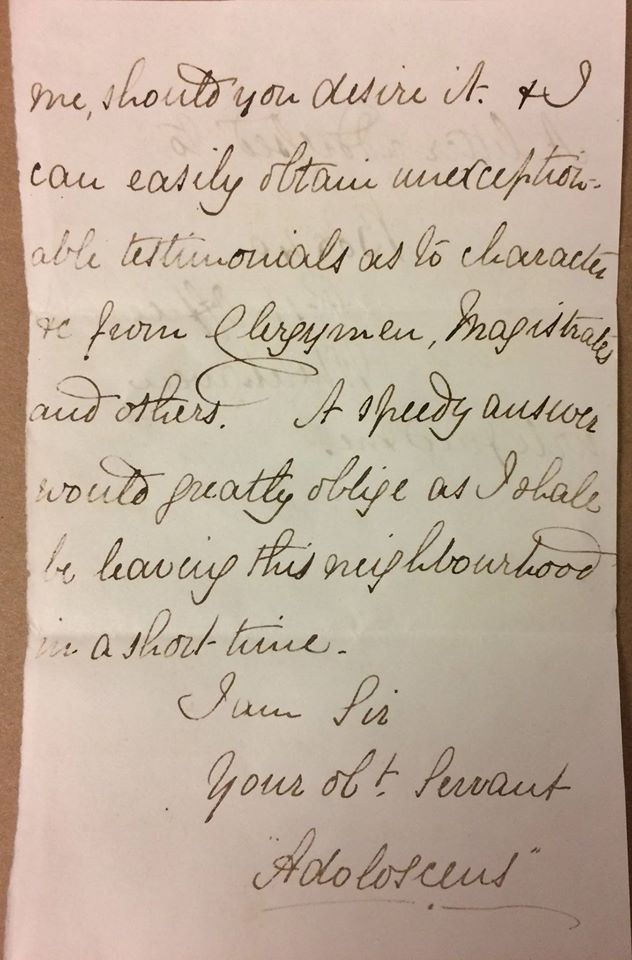 me, should you desire it. & I
can easily obtain unexception-
able testimonials as to character
&c from Clergymen, Magistrates
and others. A speedy answer
would greatly oblige as I shall
be leaving this neighbourhood
in a short time.
I am Sir
Your obt. Servant
"Adoloscens"